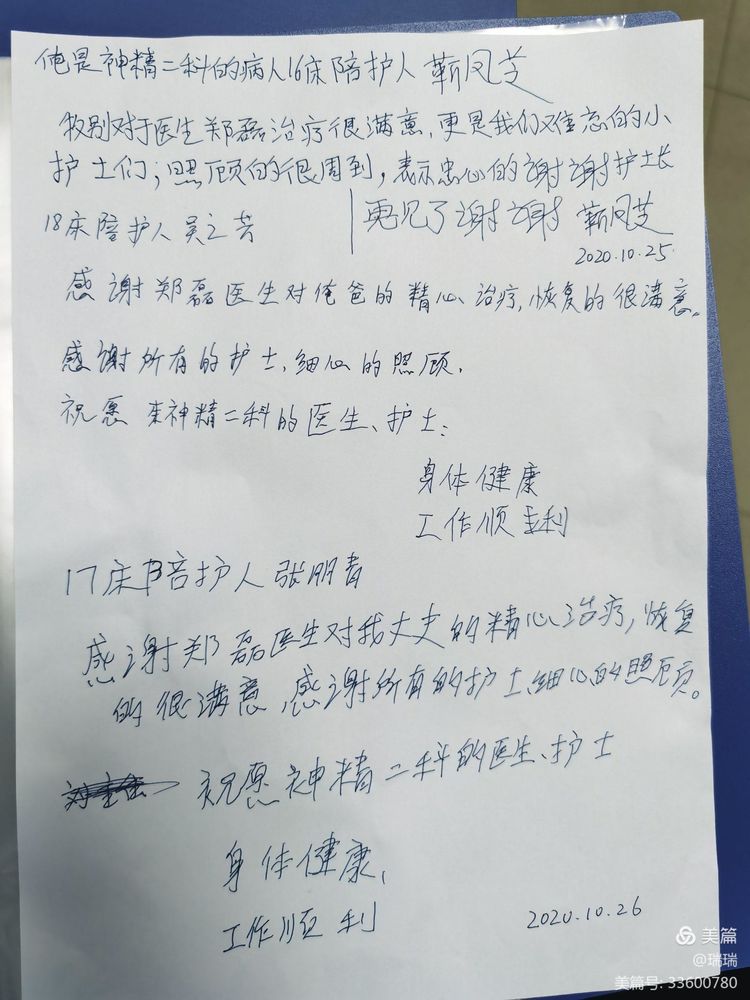 他是神精二科的病人16床陪护人靳凤芝
牧别对于医生郑磊治疗很满意,更是我们难忘的小
护士们;照顾的很周到,表示忠心的谢谢护士长
再见了谢谢 靳凤芝
2020.10.25
18床陪护人吴之芳
感谢郑磊医生对俺爸的精心治疗,恢复的很满意。
感谢所有的护士,细心的照顾.
祝愿 神精二科的医生、护士:
身体健康
工作顺利
17床陪护人张朋青
感谢郑磊医生对我丈夫的精心治疗,恢复
的很满意,感谢所有的护士细心的照顾。
祝愿神精二科的医生、护士
身体健康、
工作顺利
2020.10.26
美篇
@瑞瑞
美篇号: 33600780